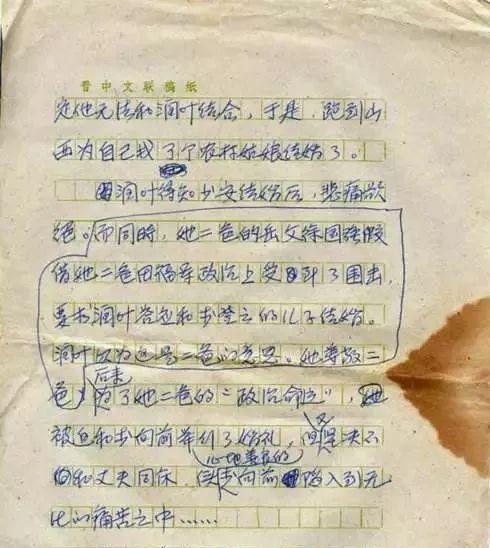 晋中文联稿纸
定他无法和润叶结合，于是，跑到山
西为自己找了个农村姑娘结婚了。
润叶得知少安结婚后，悲痛欲
绝。而同时，她二爸的岳父徐国强假
借她二爸田福军政治上受到了围击，
要求润叶答应和李登云的儿子结婚。
润叶以为这是二爸的意思。她尊敬二
爸，后来为了她二爸的“政治命运”，
被迫和李向前举行了婚礼，但又坚决不
和丈夫同床，使心地善良的李向前陷入到无
比的痛苦之中……